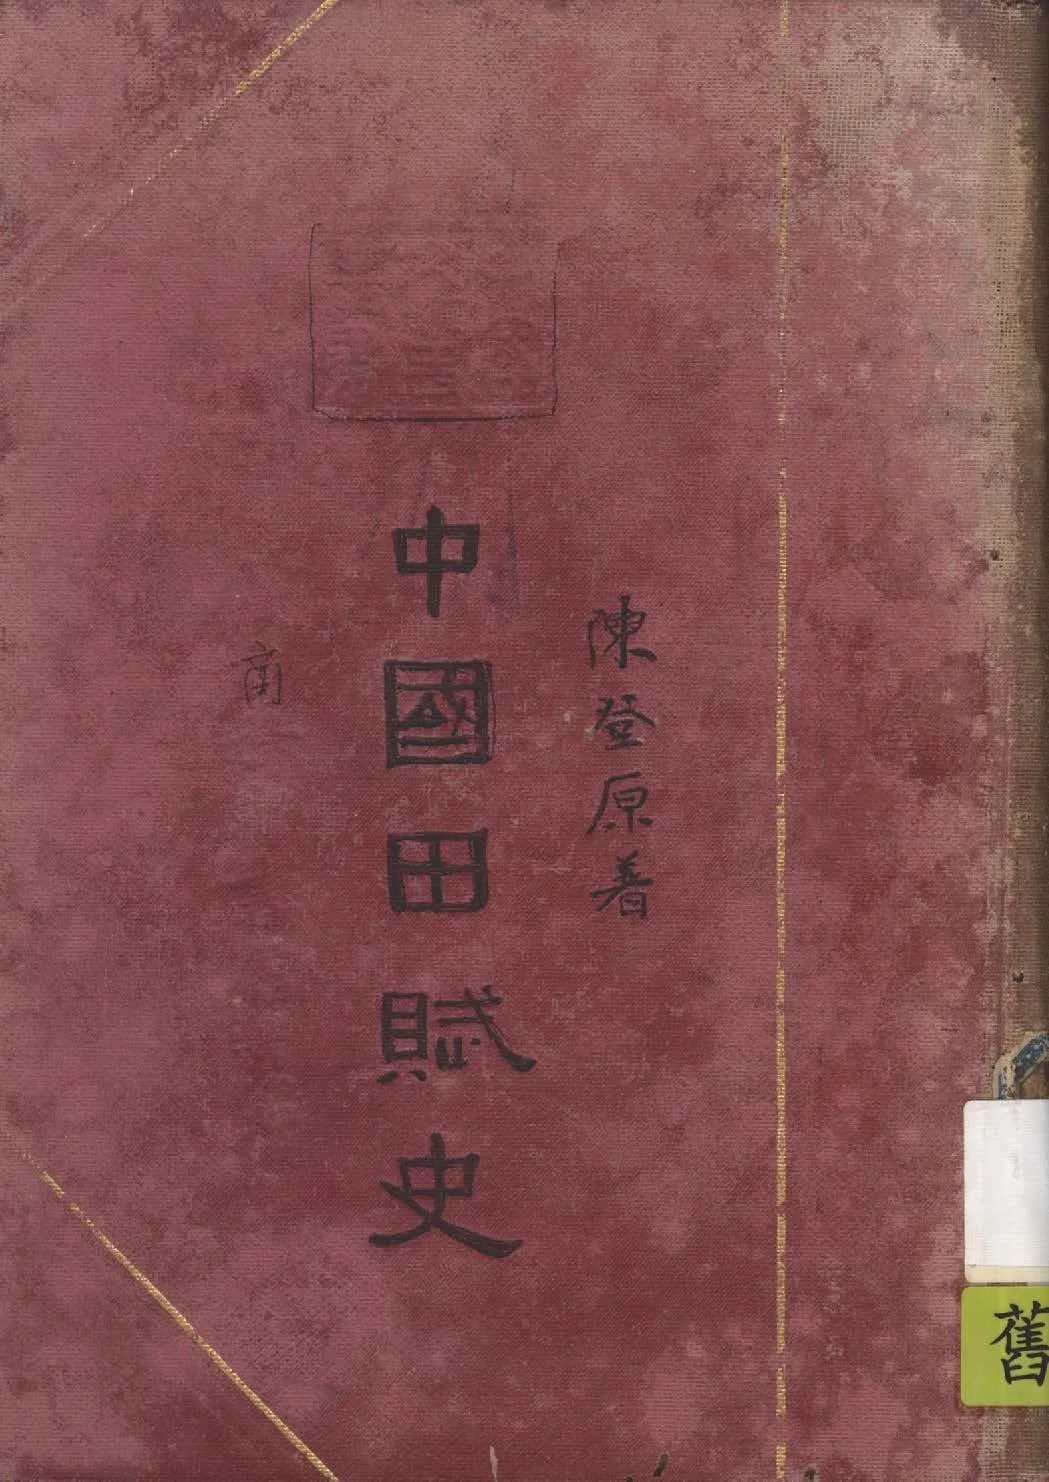 陳登原著
中國田賦史
商
舊